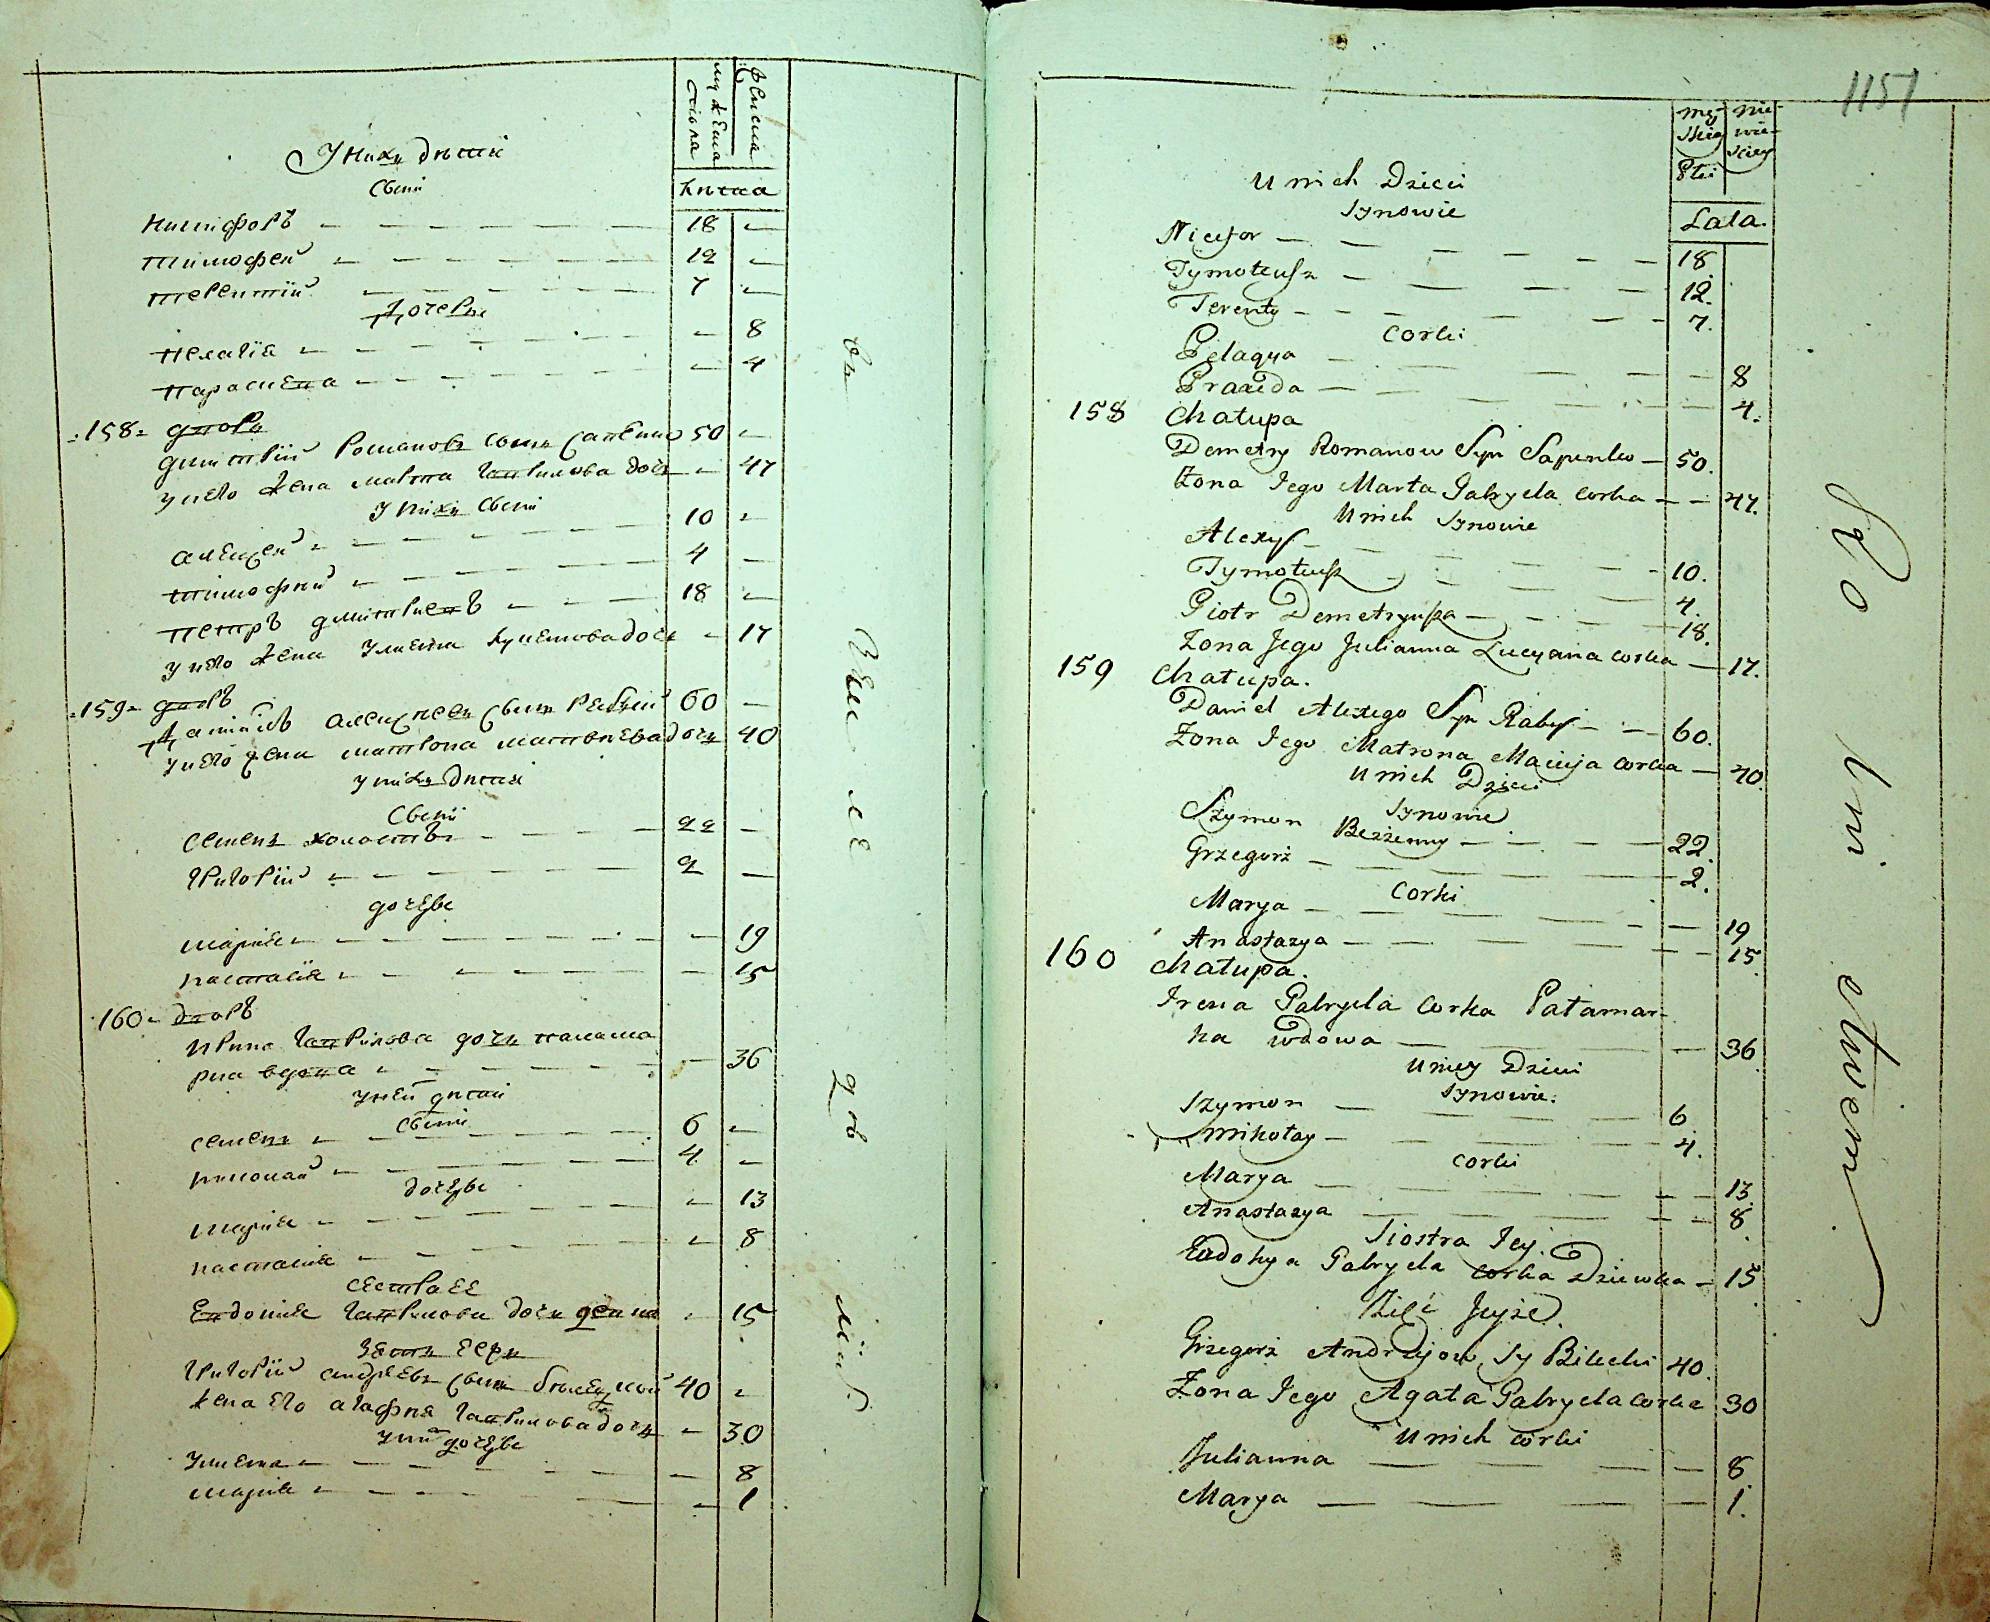 У нихъ дѣти
Сыны
мужеска
женска
пола
лѣта
Никифоръ 18
тимофей 12
терентій 7
Дочеры
пелагія 8
парасмена 4
158 дворъ
димитрій Романовъ сынъ Сапѣнко 50
у него жена марта гаврилова дочь 47
У нихъ Сыны
алексѣй 10
тимофий 4
петръ дмитріевъ 18
у него жена улиана лукянова дочь 17
159 дворъ
Даниилъ алексѣевъ сынъ Рабый 60
у него жена матрона матвѣева дочь 40
у нихъ дѣти
Сыны
семенъ холостъ 22
григорій 2
дочери
марія 19
настасія 15
160 дворъ
ирина гаврилова дочь палама
рка вдова 36
у ней дѣти
Сыны
семенъ 6
николай 4
дочери
марія 13
настасія 8
сестра ее
Евдокия гаврилова дочь девка 15
Зять ее
григорій андреевъ сынъ билецкий 40
жена его агафия гаврилова дочь 30
у них дочери
улиана 8
марія 1
1151
mę-
skiej
Płci
nie-
wie-
sciey
Lata.
U nich Dzieci
Synowie
Nicefor 18.
Tymoteusz 12.
Terenty 7.
Corki
Pelagya 8
Praxeda 4.
158 Chałupa
Demetry Romanow Syn Sapenko 50.
Żona Jego Marta Gabryela corka 47.
U nich Synowie
Alexy 10.
Tymoteusz 4.
Piotr Demetryusza 18.
Żona Jego Julianna Lucyana corka 17.
159 Chałupa.
Daniel Alexego Syn Rabyi 60.
Żona Jego Matrona Macieja corka 40
U nich Dzieci
Synowie
Szymon Bezżenny 22.
Grzegorz 2.
Corki
Marya 19
Anastazya 15.
160 Chałupa.
Irena Gabryela Corka Patamar-
ka Wdowa 36
U niey Dzieci
Synowie.
Szymon 6
Mikołay 4.
Corki
Marya 13.
Anastazya 8.
Siostra Jey.
Eudokya Gabryela corka Dziewka 15
Zięć Jeyże.
Grzegorz Andrzejow Sy Bilecki 40.
Żona Jego Agata Gabryela corka 30
U nich corki
Julianna 8
Marya 1.